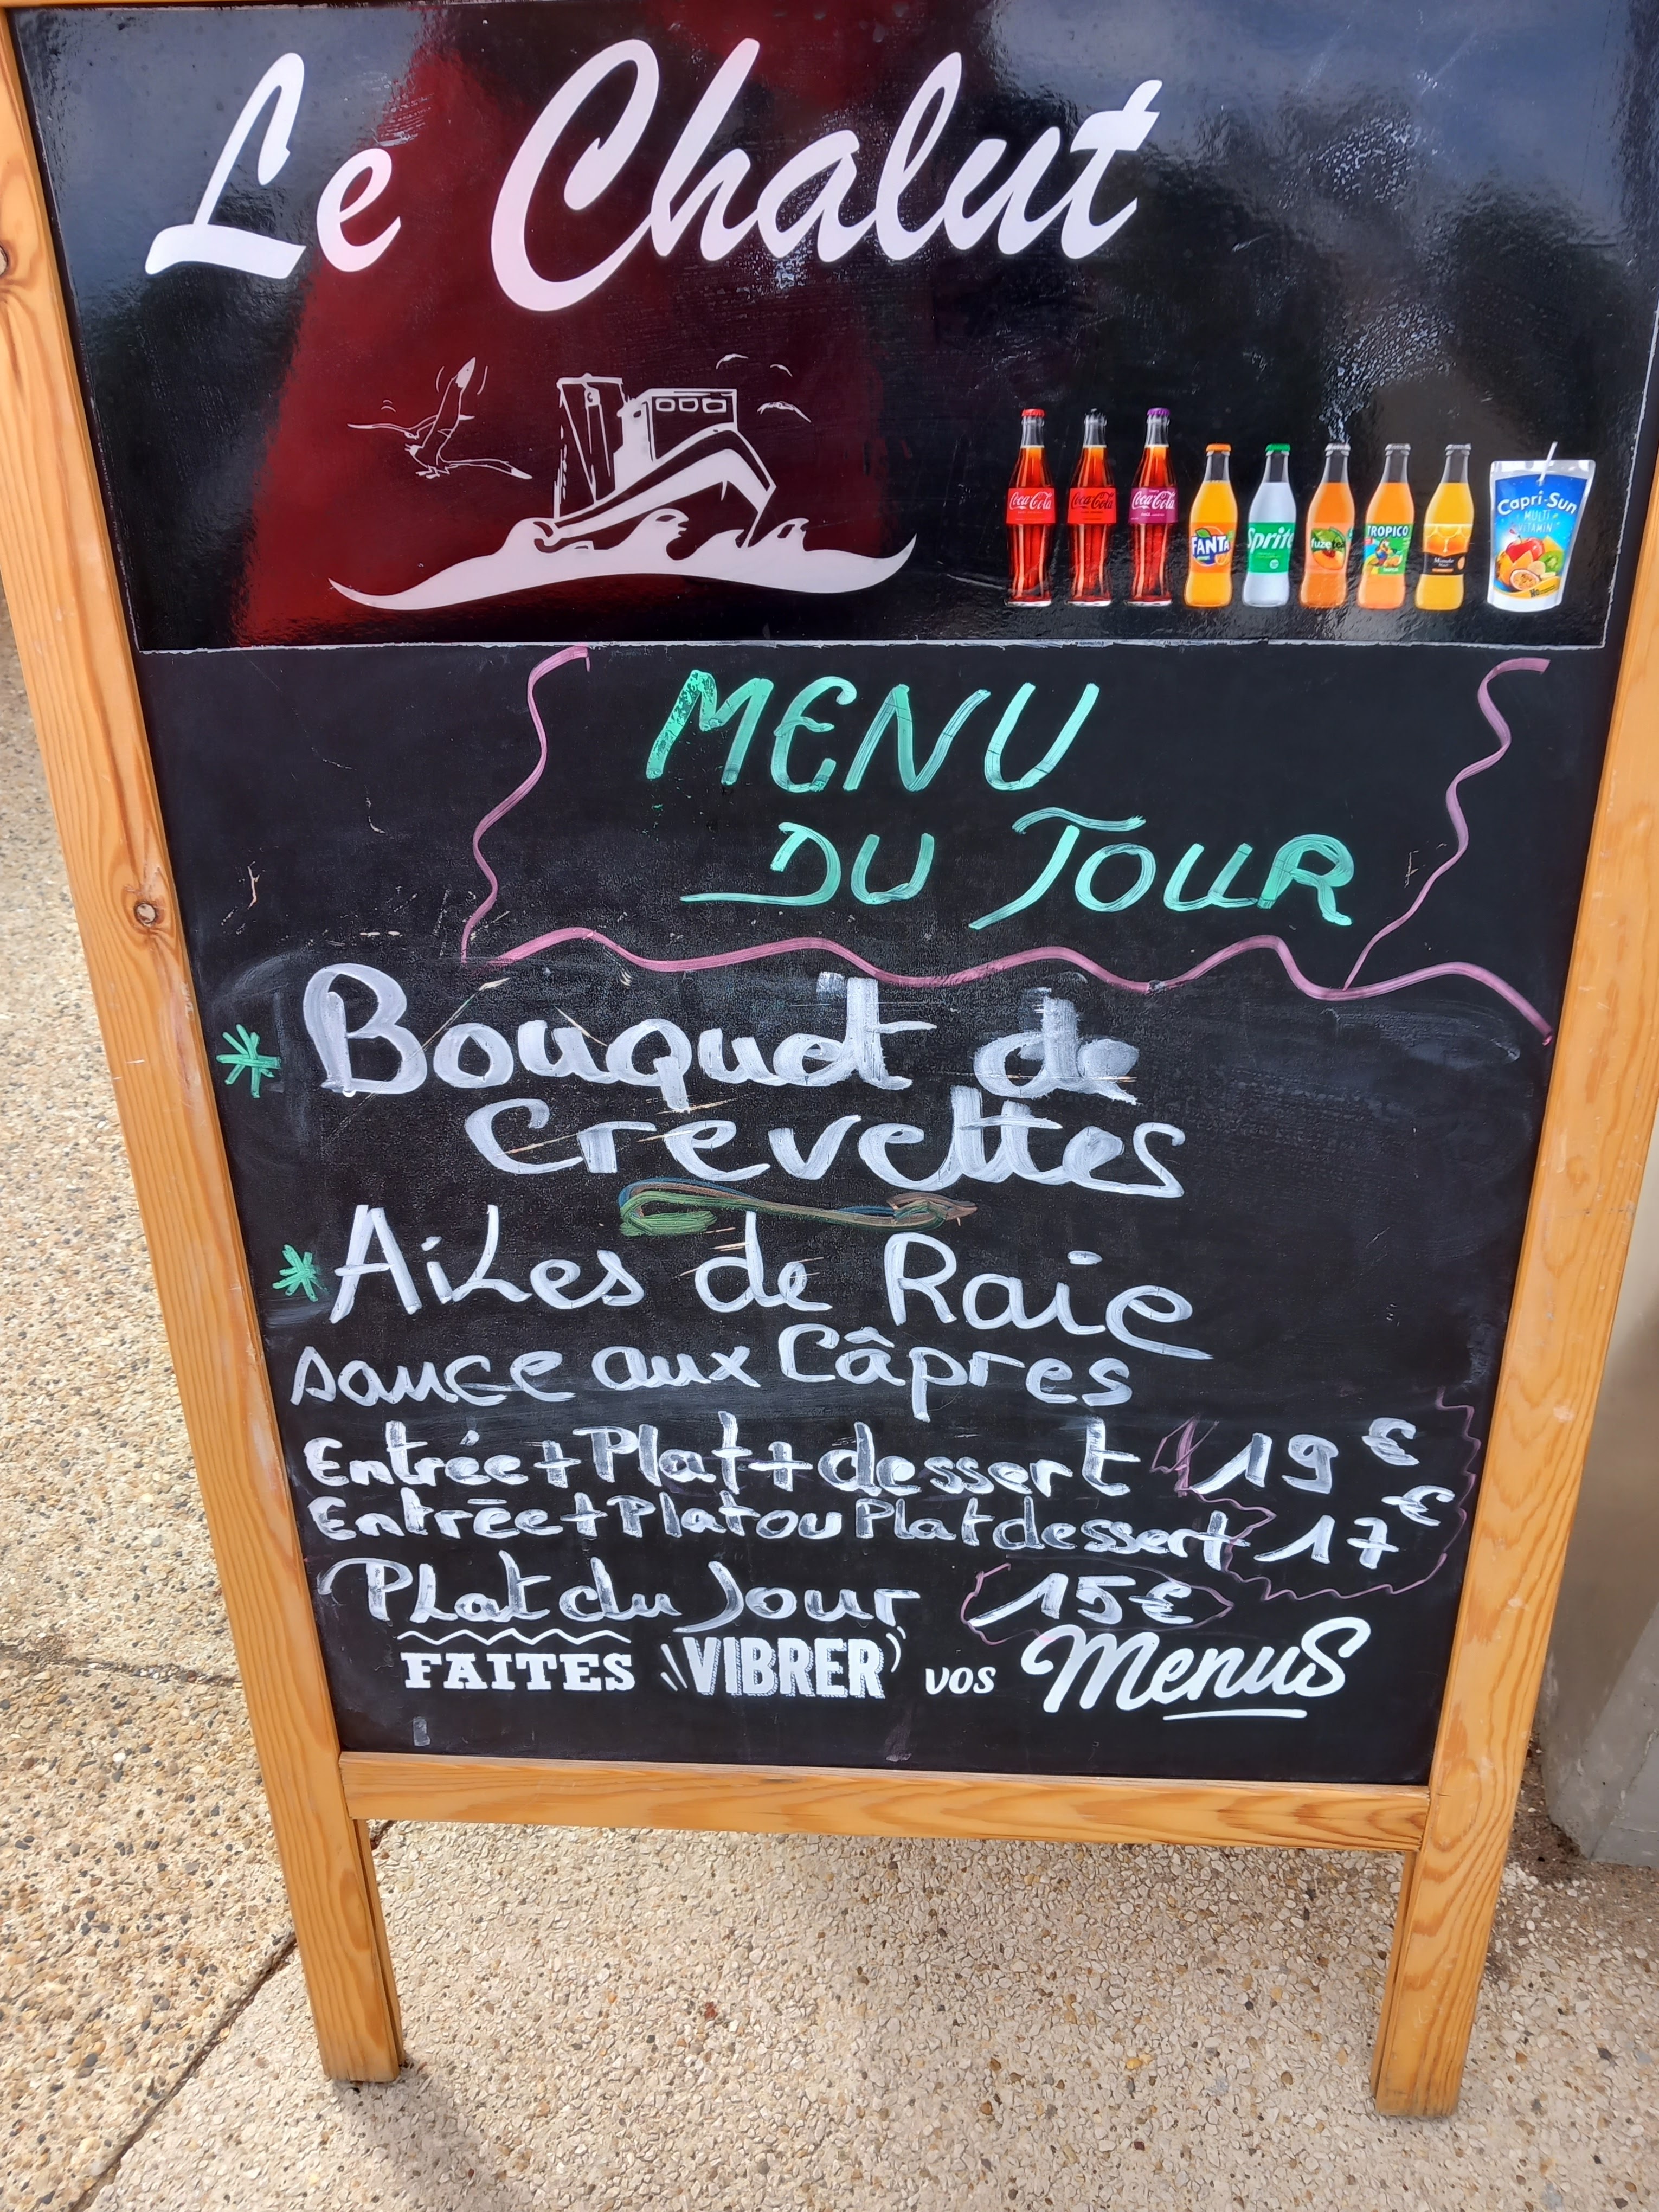 Le Chalut
Coca-Cola Coca-Cola Coca-Cola FANTA Sprite fuzetea TROPICO Capri-Sun
MULTI
VITAMIN
MENU
DU JOUR
* Bouquet de
Crevettes
* Ailes de Raie
sauce aux Câpres
Entrée+Plat+dessert 19€
Entrée+Plat ou Plat dessert 17€
Plat du Jour 15€
FAITES VIBRER VOS MenuS